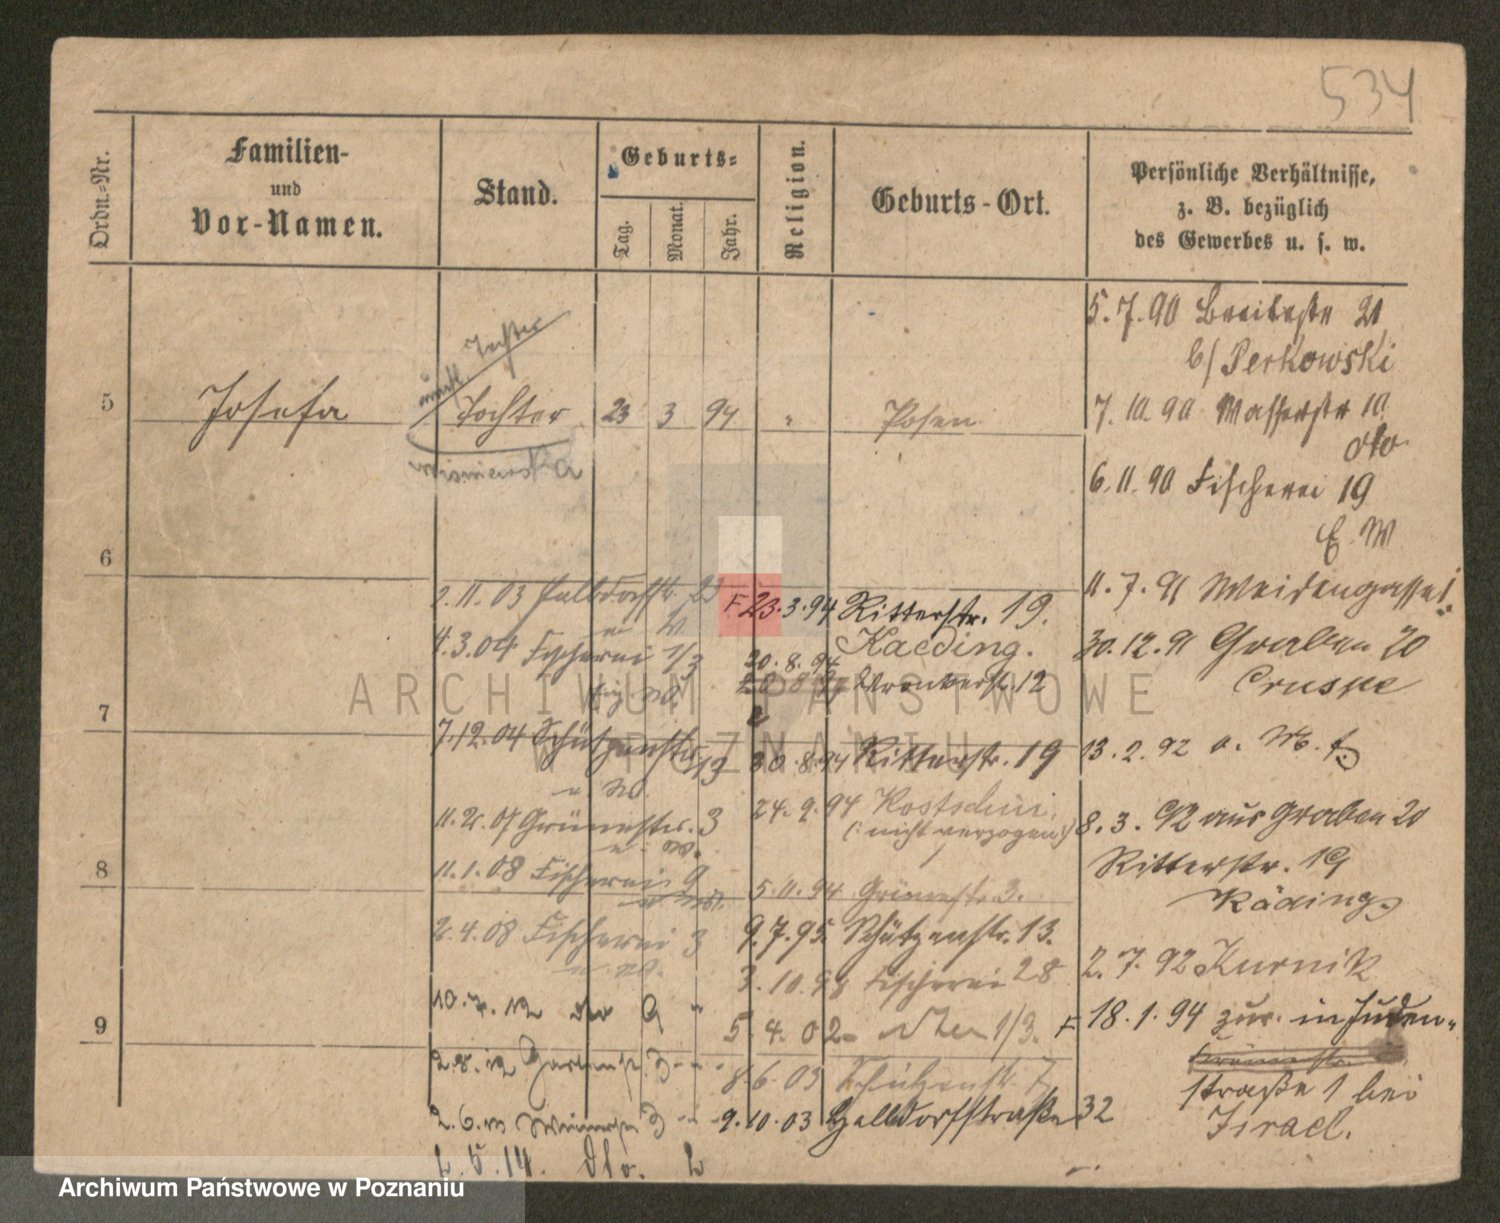 534
Ordn.-Nr.
Familien-
und
Vor-Namen.
Stand.
Geburts-
Tag.
Monat.
Jahr.
Religion.
Geburts-Ort.
Persönliche Verhältnisse,
z. B. bezüglich
des Gewerbes u. s. w.
5 Josefa Tochter 23 3 94 Posen
Tochter
Wisniewska
5.7.90 Breitestr 21
b/ Perkowski
7.10.90 Wasserstr 10
dto
6.11.90 Fischerei 19
E. W
11.7.91 Weidengasse
30.12.91 Graben 20
Cruspe
13.2.92
8.3.92 aus Graben 20
Ritterstr. 19
Käding
2.7.92 Kurnik
F 18.1.94 zur. in Juden-
straße 1 bei
Israel.
6
7
8
9
F 23.3.94 Ritterstr. 19.
Kaeding.
20.8.94
12
30.8.94 Ritterstr. 19
24.9.94 Kostschin
(: nicht verzogen :)
5.11.94 Grünestr. 3.
9.7.95 Schützenstr. 13.
3.10.98 Fischerei 28
5.4.02 1/3.
8.6.03 Schützenstr. 7
9.10.03 Halldorfstraße 32
2.11.03 Halldorfstr. 23
4.3.04 Fischerei 1/3
7.12.04 Schützenstr. 13
Grünestr. 3
11.1.08 Fischerei 9
2.4.08 Fischerei 3
10.7.12 dto 9
2.5.14. dto.
ARCHIWUM PAŃSTWOWE
W POZNANIU
Archiwum Państwowe w Poznaniu